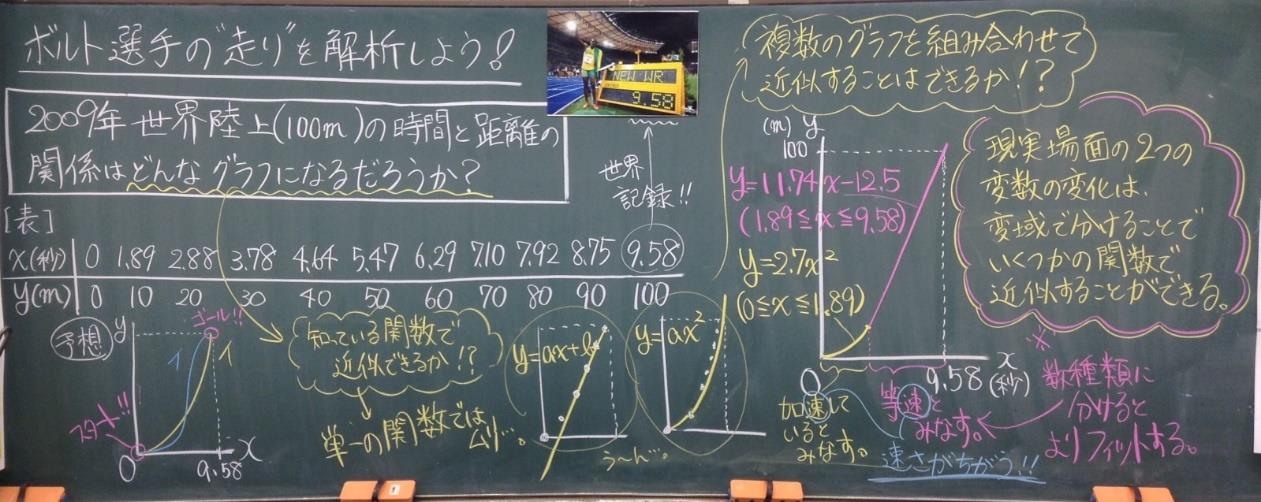 ボルト選手の"走り"を解析しよう!
2009年 世界陸上(100m)の時間と距離の
関係はどんなグラフになるだろうか?
NEW WR
9.58
世界
記録!!
[表]
x(秒) 0 1.89 2.88 3.78 4.64 5.47 6.29 7.10 7.92 8.75 9.58
y(m) 0 10 20 30 40 50 60 70 80 90 100
予想
y
ゴール!!
イ
イ
スタート!!
0
9.58
x
知っている関数で
近似できるか!?
単一の関数では
ムリ…。
y=ax+b
y=ax²
う〜ん…。
複数のグラフを組み合わせて
近似することはできるか!?
(m) y
100
y=11.74x-12.5
(1.89≦x≦9.58)
y=2.7x²
(0≦x≦1.89)
0
9.58
x
(秒)
加速して
いると
みなす。
等速と
みなす。
速さがちがう!!
現実場面の2つの
変数の変化は、
変域で分けることで
いくつかの関数で
近似することができる。
※
数種類に
分けると
よりフィットする。